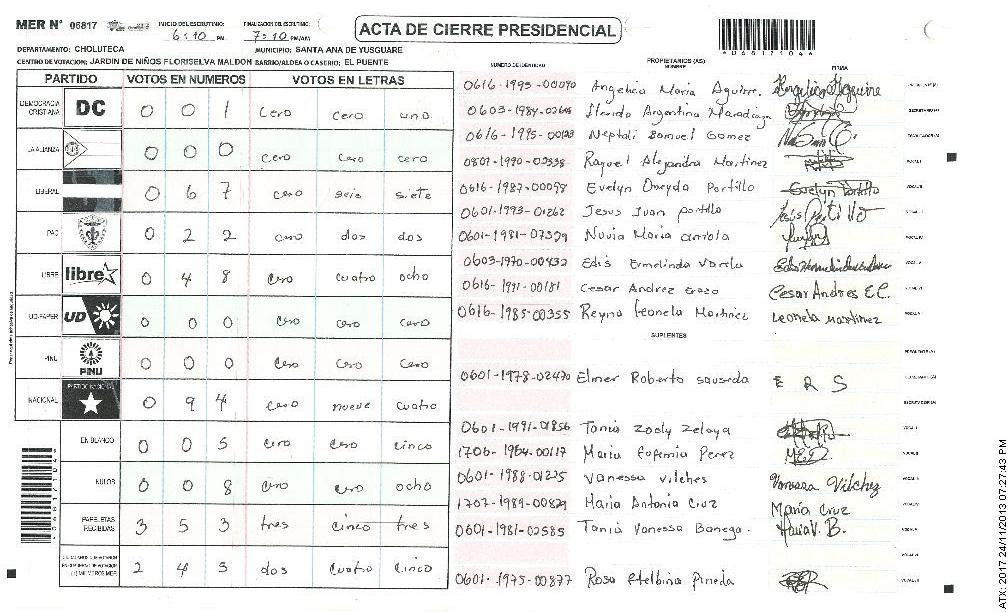 MER Nº 06817 INICIO DEL ESCRUTINIO: 6:10 PM FINALIZACION DEL ESCRUTINIO: 7:10 PM/AM
ACTA DE CIERRE PRESIDENCIAL
DEPARTAMENTO: CHOLUTECA MUNICIPIO: SANTA ANA DE YUSGUARE
CENTRO DE VOTACION: JARDIN DE NIÑOS FLORISELVA MALDON BARRIO/ALDEA O CASERIO: EL PUENTE
PARTIDO VOTOS EN NUMEROS VOTOS EN LETRAS
DEMOCRACIA CRISTIANA DC 0 0 1 cero cero uno
LA ALIANZA 0 0 0 cero cero cero
LIBERAL 0 6 7 cero seis siete
PAC 0 2 2 cero dos dos
LIBRE libre 0 4 8 cero cuatro ocho
UD-FAPER UD 0 0 0 cero cero cero
PINU PINU 0 0 0 cero cero cero
NACIONAL PARTIDO NACIONAL 0 9 4 cero nueve cuatro
EN BLANCO 0 0 5 cero cero cinco
NULOS 0 0 8 cero cero ocho
PAPELETAS RECIBIDAS 3 5 3 tres cinco tres
2 4 5 dos cuatro cinco
NUMERO DE IDENTIDAD PROPIETARIOS (AS) NOMBRE FIRMA
0616-1995-00090 Angelica Maria Aguirre
Argentina Maradiaga
0616-1995-00123 Neptali Samuel Gomez
0801-1990-02338 Raquel Alejandra Martinez
0616-1987-00098 Evelyn Oneyda Portillo Evelyn Portillo
0601-1993-01262 Jesus Juan portillo
0601-1981-07329 Nuvia Maria arriola
0603-1970-00432 Edis Ermelinda Varela
0616-1991-00181 Cesar Andrez Cesar Andres E.C.
0616-1985-00355 Reyna Leonela Martinez Leonela martinez
SUPLENTES
0601-1978-02470 Elmer Roberto sauseda E R S
0601-1991-01856 Tania Zoely Zelaya
1706-1964-00117 Maria Eufemia Perez
0601-1988-01225 Vanessa vilches Vanessa Vilchez
1707-1989-00829 Maria Antonia Cruz María Cruz
0601-1981-02585 Tania Vanessa Banega. Tania V. B.
0601-1975-00877 Rosa Etelbina Pineda
ATX: 2017 24/11/2013 07:27:43 PM